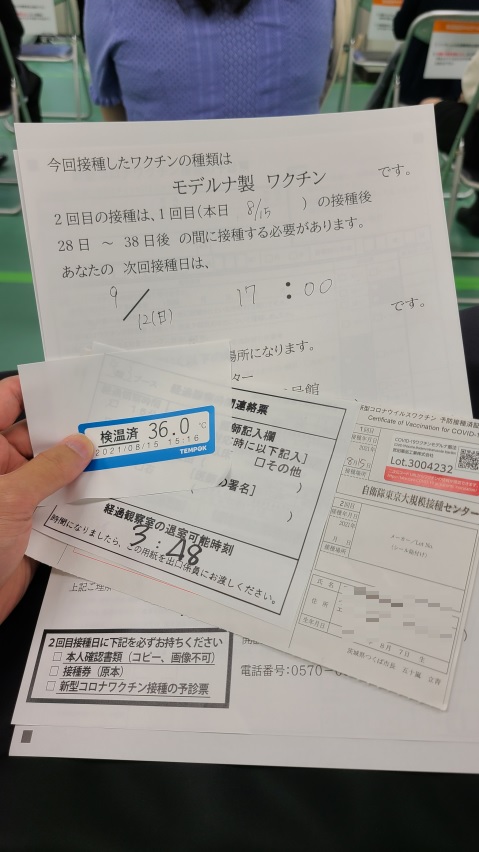 今回接種したワクチンの種類は
モデルナ製 ワクチン です。
2回目の接種は、1回目(本日 8/15 )の接種後
28日 ～ 38日後 の間に接種する必要があります。
あなたの 次回接種日は、
9/12(日) 17:00 です。
場所になります。
検温済 36.0 ℃
2021/08/15 15:16
TEMPOK
連絡票
師記入欄
時に以下記入]
□その他
の署名]
)
経過観察室の退室可能時刻
3:48
時間になりましたら、この用紙を出口係員にお渡しください。
新型コロナウイルスワクチン 予防接種済証
Certificate of Vaccination for COVID-
1回目
接種年月日
2021年
8月15日
接種場所
Lot.3004232
自衛隊東京大規模接種センター
2回目
接種年月日
2021年
月 日
接種場所
メーカー/Lot No.
(シール貼付け)
氏名
住所
生年月日
6月 7日 生
茨城県つくば市長 五十嵐 立青
上記ご理
2回目接種日に下記を必ずお持ちください
□ 本人確認書類（コピー、画像不可）
□ 接種券（原本）
□ 新型コロナワクチン接種の予診票
電話番号:0570-